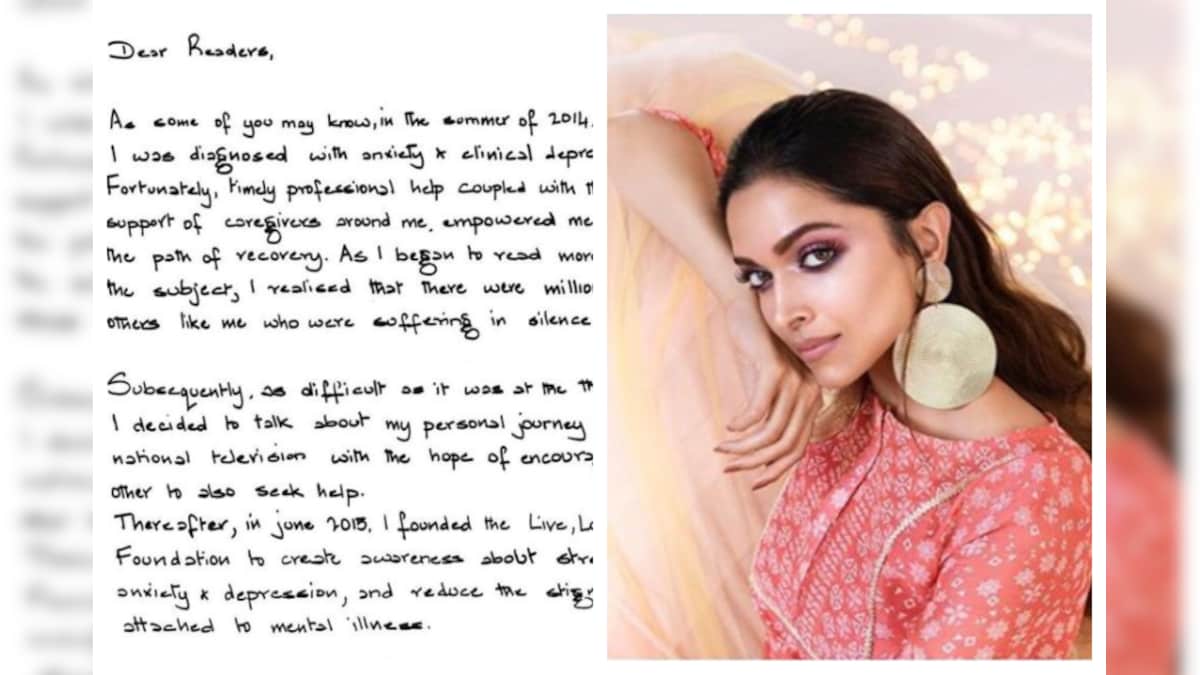 Dear Readers,
As some of you may know, in the summer of 2014.
I was diagnosed with anxiety & clinical depre
Fortunately, timely professional help coupled with th
support of caregivers around me, empowered me
the path of recovery. As I began to read more
the subject, I realised that there were millio
others like me who were suffering in silence
Subsequently, as difficult as it was at the
I decided to talk about my personal journey
national television with the hope of encoura
other to also seek help.
Thereafter, in june 2015, I founded the Live, L
Foundation to create awareness about stre
anxiety & depression, and reduce the stig
attached to mental illness.